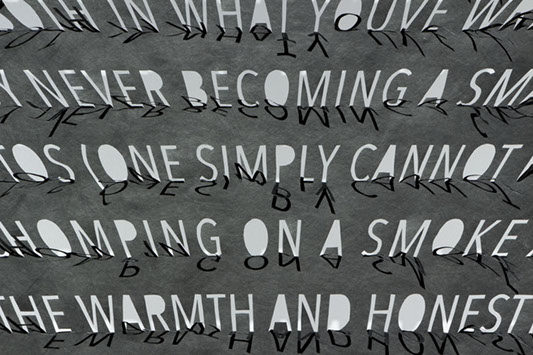 OTH IN WHAT YOU'VE W
Y NEVER BECOMING A SM
TOS (ONE SIMPLY CANNOT
HOMPING ON A SMOKE
THE WARMTH AND HONEST